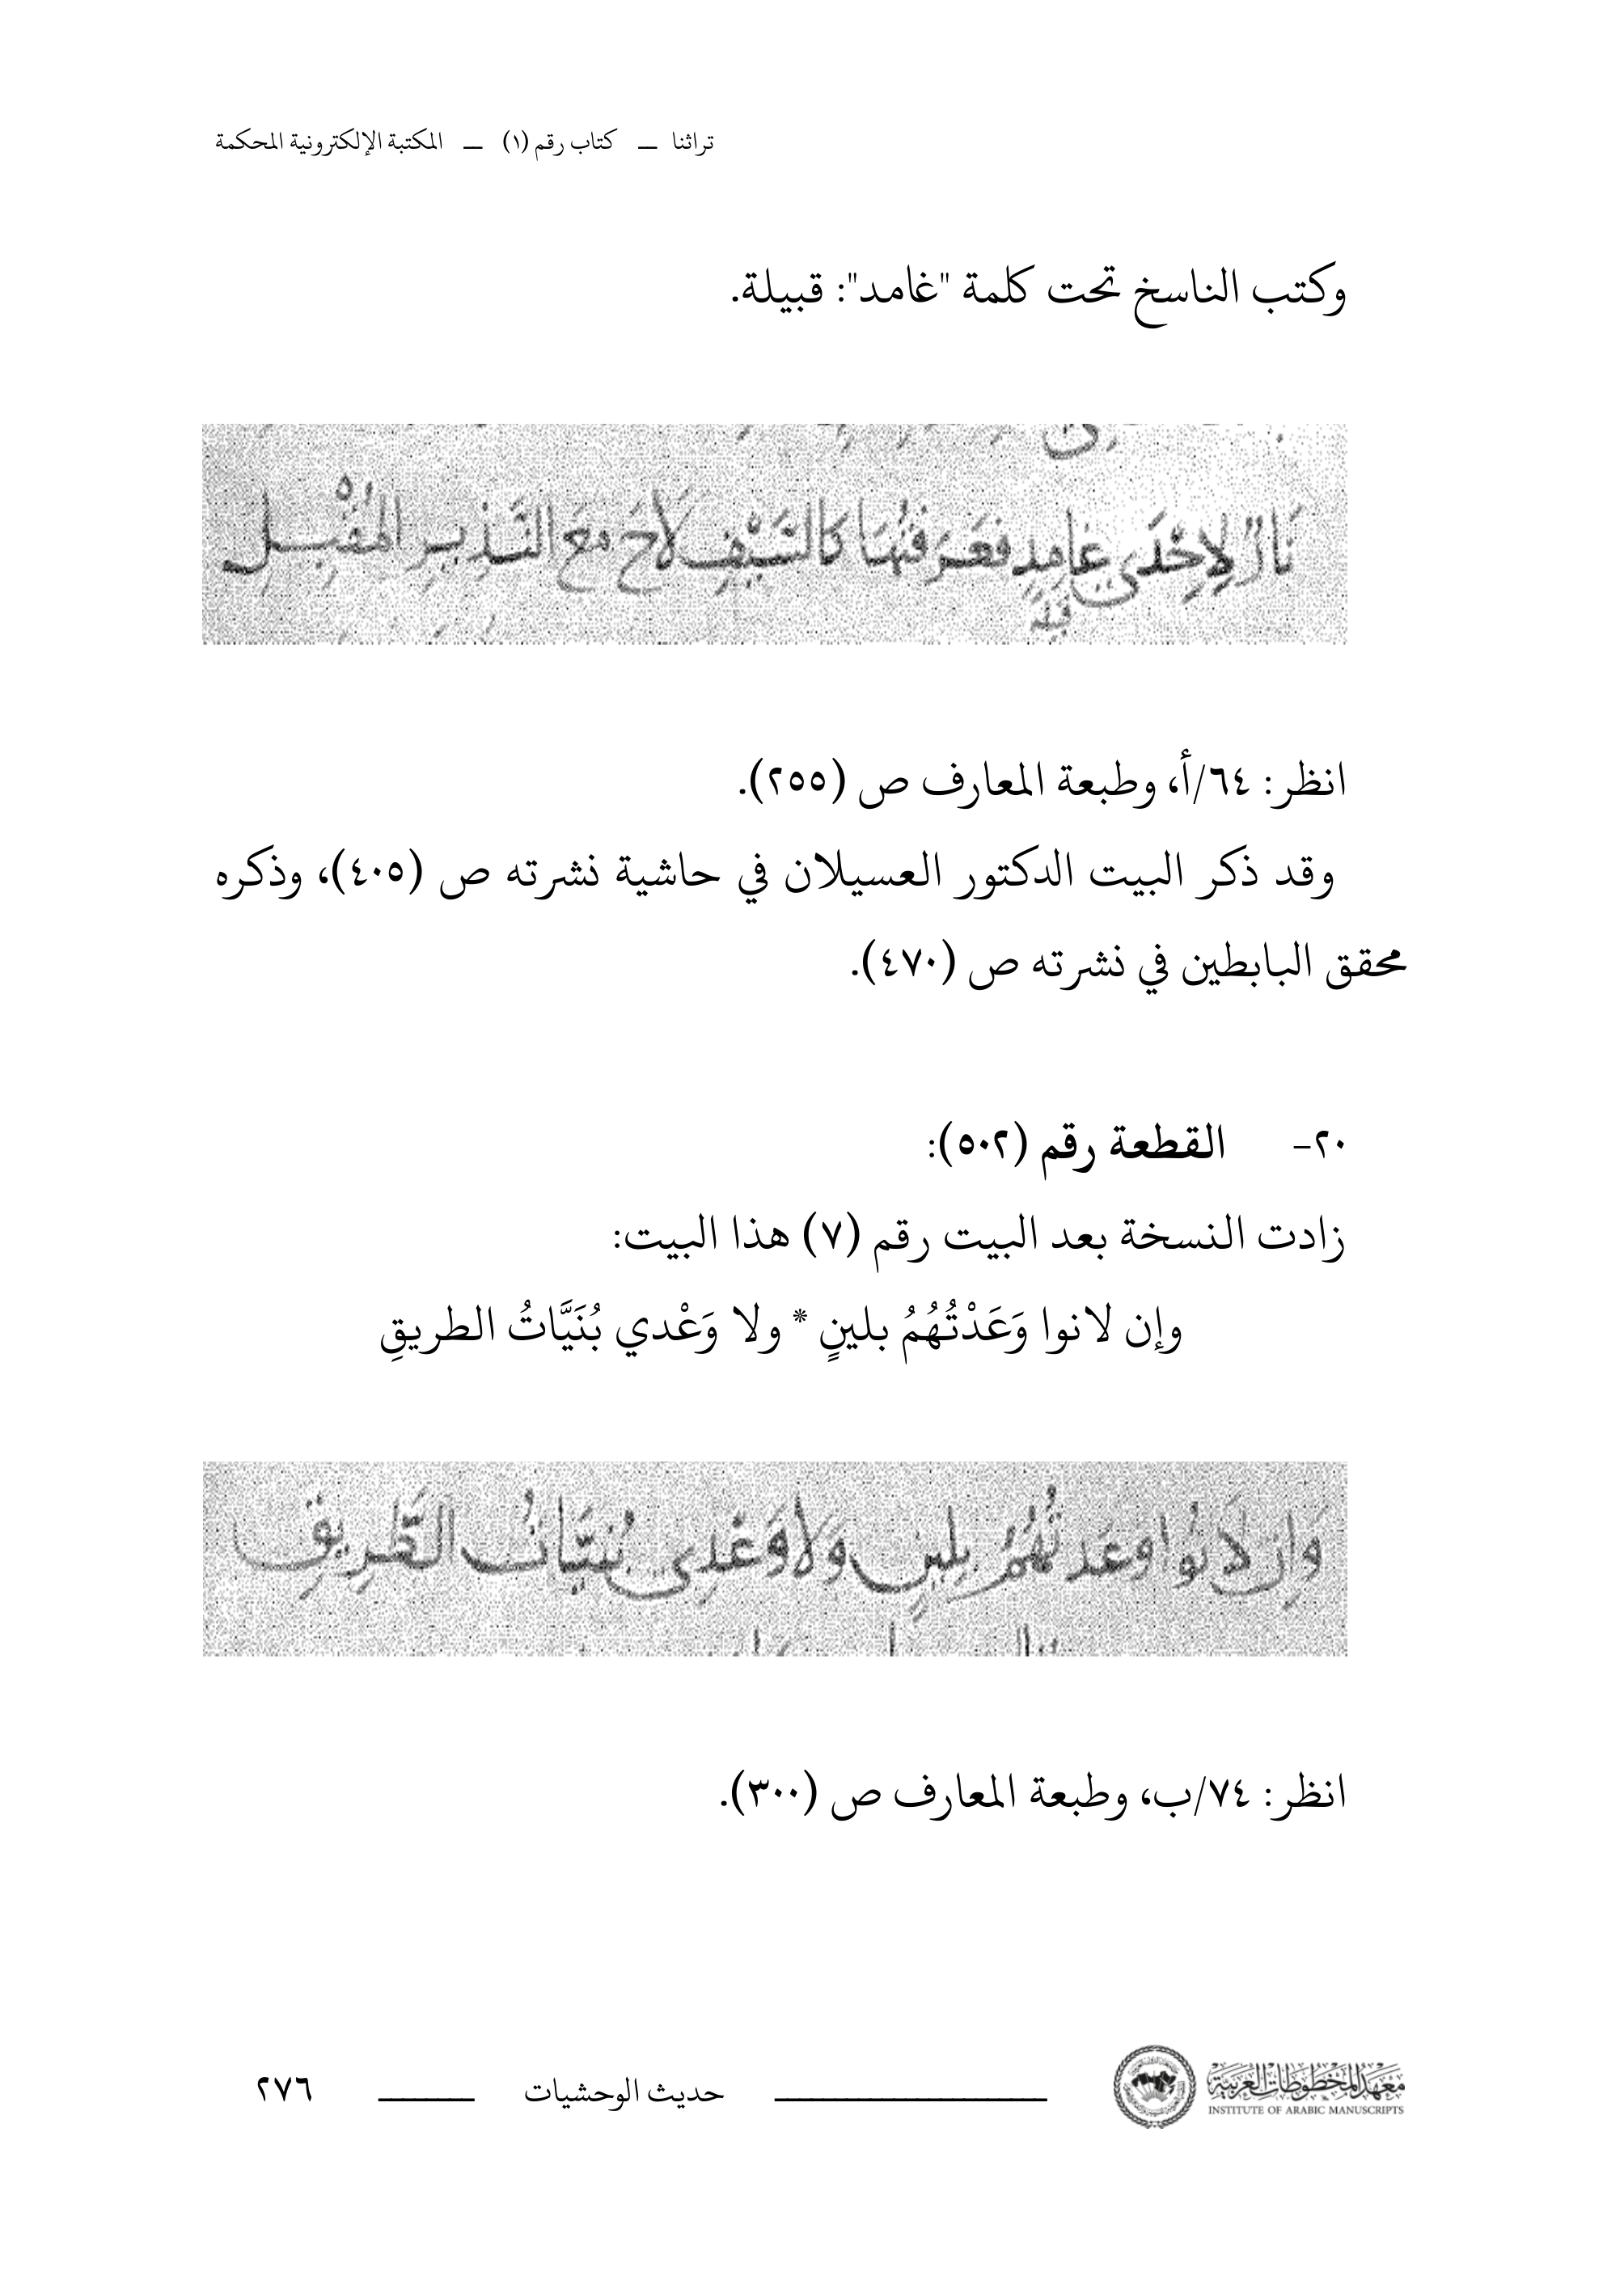 تراثنا – كتاب رقم (١) – المكتبة الإلكترونية المحكمة
وكتب الناسخ تحت كلمة "غامد": قبيلة.
نَارٌ لِإِحْدَى غَامِدٍ فَعَرَفْتُهَا كَالسَّيْفِ لَاحَ مَعَ النَّذِيرِ المُقْبِلِ
قبيلة
انظر: ٦٤/أ، وطبعة المعارف ص (٢٥٥).
وقد ذكر البيت الدكتور العسيلان في حاشية نشرته ص (٤٠٥)، وذكره
محقق البابطين في نشرته ص (٤٧٠).
٢٠- القطعة رقم (٥٠٢):
زادت النسخة بعد البيت رقم (٧) هذا البيت:
وإن لانوا وَعَدْتُهُمُ بلينٍ * ولا وَعْدي بُنَيَّاتُ الطريقِ
وَإِن لَانُوا وَعَدتُهُمُ بِلِينٍ وَلَا وَعْدِى بُنَيَّاتُ الطَّرِيقِ
انظر: ٧٤/ب، وطبعة المعارف ص (٣٠٠).
معهد المخطوطات العربية
INSTITUTE OF ARABIC MANUSCRIPTS
حديث الوحشيات
٢٧٦